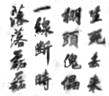 生死去來
棚頭傀儡
一線断時
落落磊磊